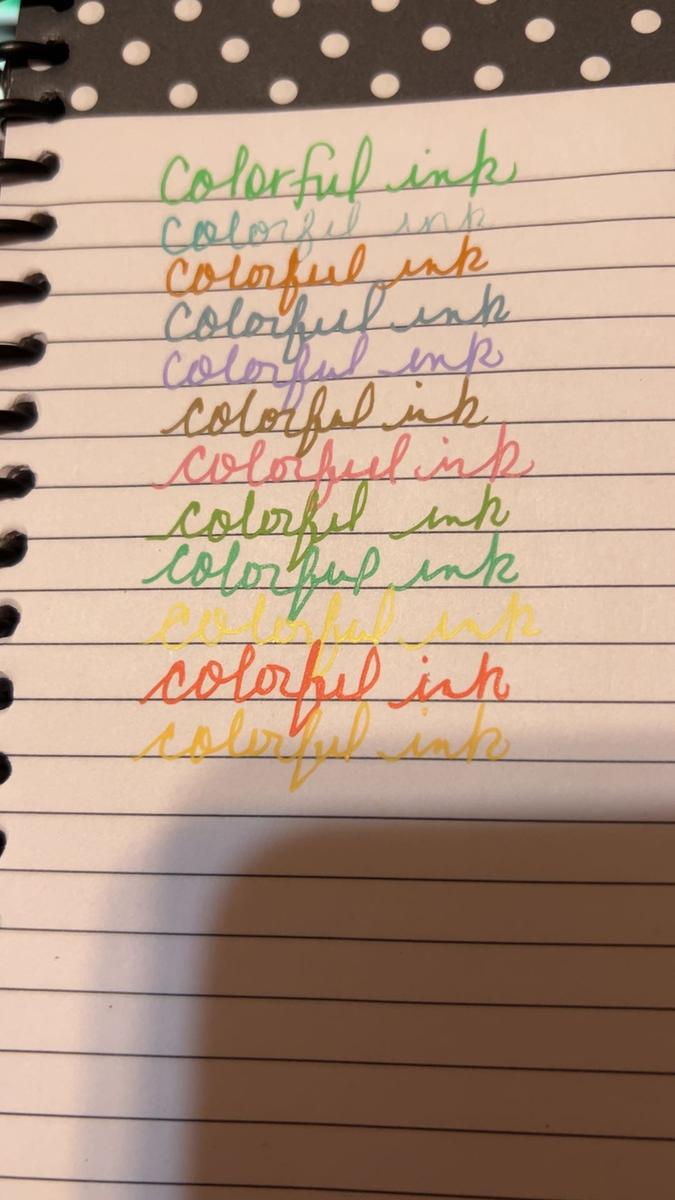 Colorful ink
Colorful ink
Colorful ink
Colorful ink
Colorful ink
colorful ink
colorful ink
colorful ink
colorful ink
colorful ink
colorful ink
colorful ink